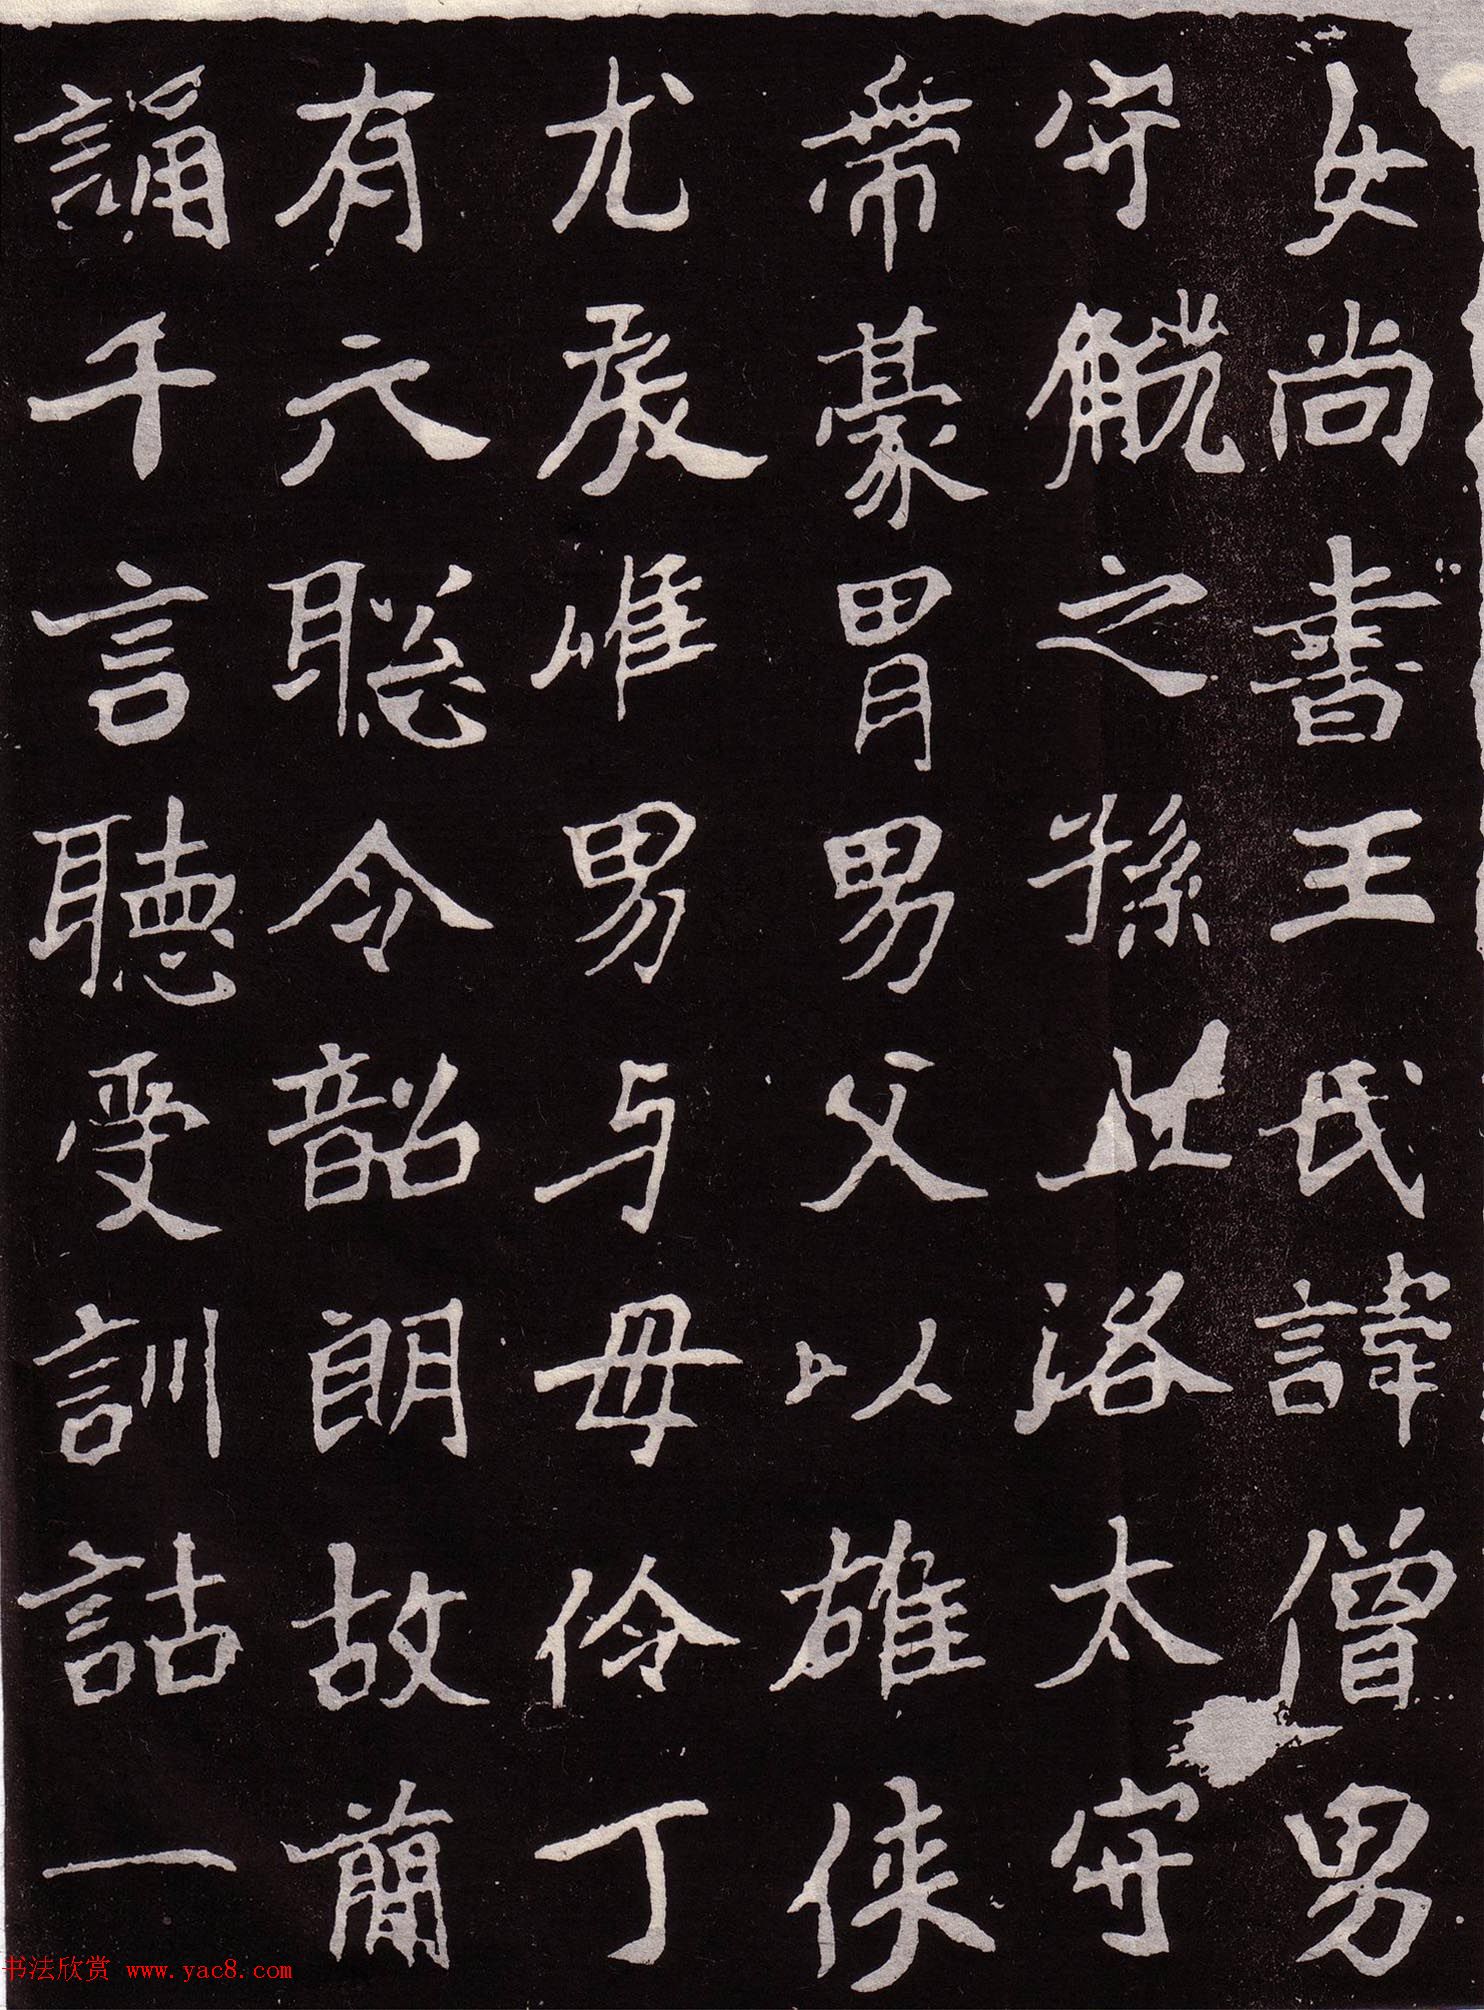 女尚書王氏諱僧男
守觥之孫洛太守
帶豪胄男父以雄俠
尤辰唯男与母伶丁
有六聰令韶朗故簡
誦千言聽受訓詁一
书法欣赏 www.yac8.com